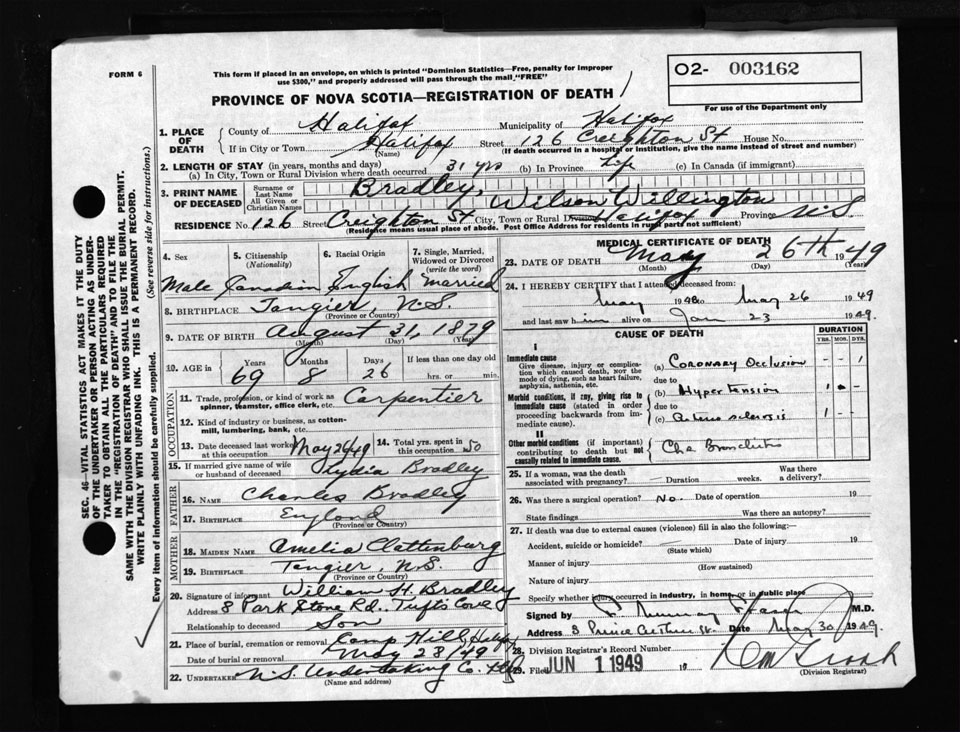 FORM 6
This form if placed in an envelope, on which is printed "Dominion Statistics—Free, penalty for improper
use $300," and properly addressed will pass through the mail "FREE"
O2- 003162
For use of the Department only
PROVINCE OF NOVA SCOTIA—REGISTRATION OF DEATH
SEC. 46—VITAL STATISTICS ACT MAKES IT THE DUTY
OF THE UNDERTAKER OR PERSON ACTING AS UNDER-
TAKER TO OBTAIN ALL THE PARTICULARS REQUIRED
IN THE "REGISTRATION OF DEATH" AND TO FILE THE
SAME WITH THE DIVISION REGISTRAR WHO SHALL ISSUE THE BURIAL PERMIT.
WRITE PLAINLY WITH UNFADING INK. THIS IS A PERMANENT RECORD.
Every item of information should be carefully supplied. (See reverse side for instructions.)
1. PLACE OF DEATH
County of Halifax Municipality of Halifax
If in City or Town Halifax (Name) Street 126 Creighton St House No.
(If death occurred in a hospital or institution, give the name instead of street and number)
2. LENGTH OF STAY (in years, months and days)
(a) In City, Town or Rural Division where death occurred 31 yrs (b) In Province Life (c) In Canada (if immigrant)
3. PRINT NAME OF DECEASED
Surname or Last Name Bradley,
All Given or Christian Names Wilson Willington
RESIDENCE No. 126 Street Creighton St City, Town or Rural Division Halifax Province N.S.
(Residence means usual place of abode. Post Office Address for residents in rural parts not sufficient)
4. Sex 5. Citizenship (Nationality) 6. Racial Origin 7. Single, Married, Widowed or Divorced (write the word)
Male Canadian English married
8. BIRTHPLACE Tangier, N.S.
(Province or Country)
9. DATE OF BIRTH August 31, 1879
(Month) (Day) (Year)
10. AGE in Years Months Days If less than one day old
69 8 26 hrs. or min.
OCCUPATION
11. Trade, profession, or kind of work as
spinner, teamster, office clerk, etc. Carpentier
12. Kind of industry or business, as cotton-
mill, lumbering, bank, etc.
13. Date deceased last worked at this occupation May 26/49 14. Total yrs. spent in this occupation 50
15. If married give name of wife
or husband of deceased Lydia Bradley
FATHER
16. NAME Charles Bradley
17. BIRTHPLACE England
(Province or Country)
MOTHER
18. MAIDEN NAME Amelia Clattenburg
19. BIRTHPLACE Tangier, N.S.
(Province or Country)
20. Signature of informant William H. Bradley
Address 8 Park Stone Rd., Tufts Cove
Relationship to deceased Son
21. Place of burial, cremation or removal Camp Hill, Halifax
Date of burial or removal May 28/49
22. UNDERTAKER N.S. Undertaking Co. Hfx
(Name and address)
MEDICAL CERTIFICATE OF DEATH
23. DATE OF DEATH May 26th 1949
(Month) (Day) (Year)
24. I HEREBY CERTIFY that I attended deceased from:
May 1948 to May 26 1949
and last saw him alive on Jan 23 1949.
CAUSE OF DEATH
DURATION
YRS. MOS. DYS.
I
Immediate cause
Give disease, injury or complica-
tion which caused death, NOT the
mode of dying, such as heart failure,
asphyxia, asthenia, etc.
(a) Coronary Occlusion - - 1
due to
Morbid conditions, if any, giving rise to
immediate cause (stated in order
proceeding backwards from im-
mediate cause).
(b) Hypertension 1 - -
due to
(c) Arteriosclerosis 1 - -
II
Other morbid conditions (if important)
contributing to death but not
causally related to immediate cause.
Chr Bronchitis
25. If a woman, was the death
associated with pregnancy? Duration weeks. Was there a delivery?
26. Was there a surgical operation? No. Date of operation 19
State findings Was there an autopsy?
27. If death was due to external causes (violence) fill in also the following:—
Accident, suicide or homicide? Date of injury 19
(State which)
Manner of injury
(How sustained)
Nature of injury
Specify whether injury occurred in industry, in home, or in public place
Signed by M.D.
Address 8 Prince Arthur St. Date May 30 1949.
28. Division Registrar's Record Number
29. Filed JUN 1 1949 19
(Division Registrar)